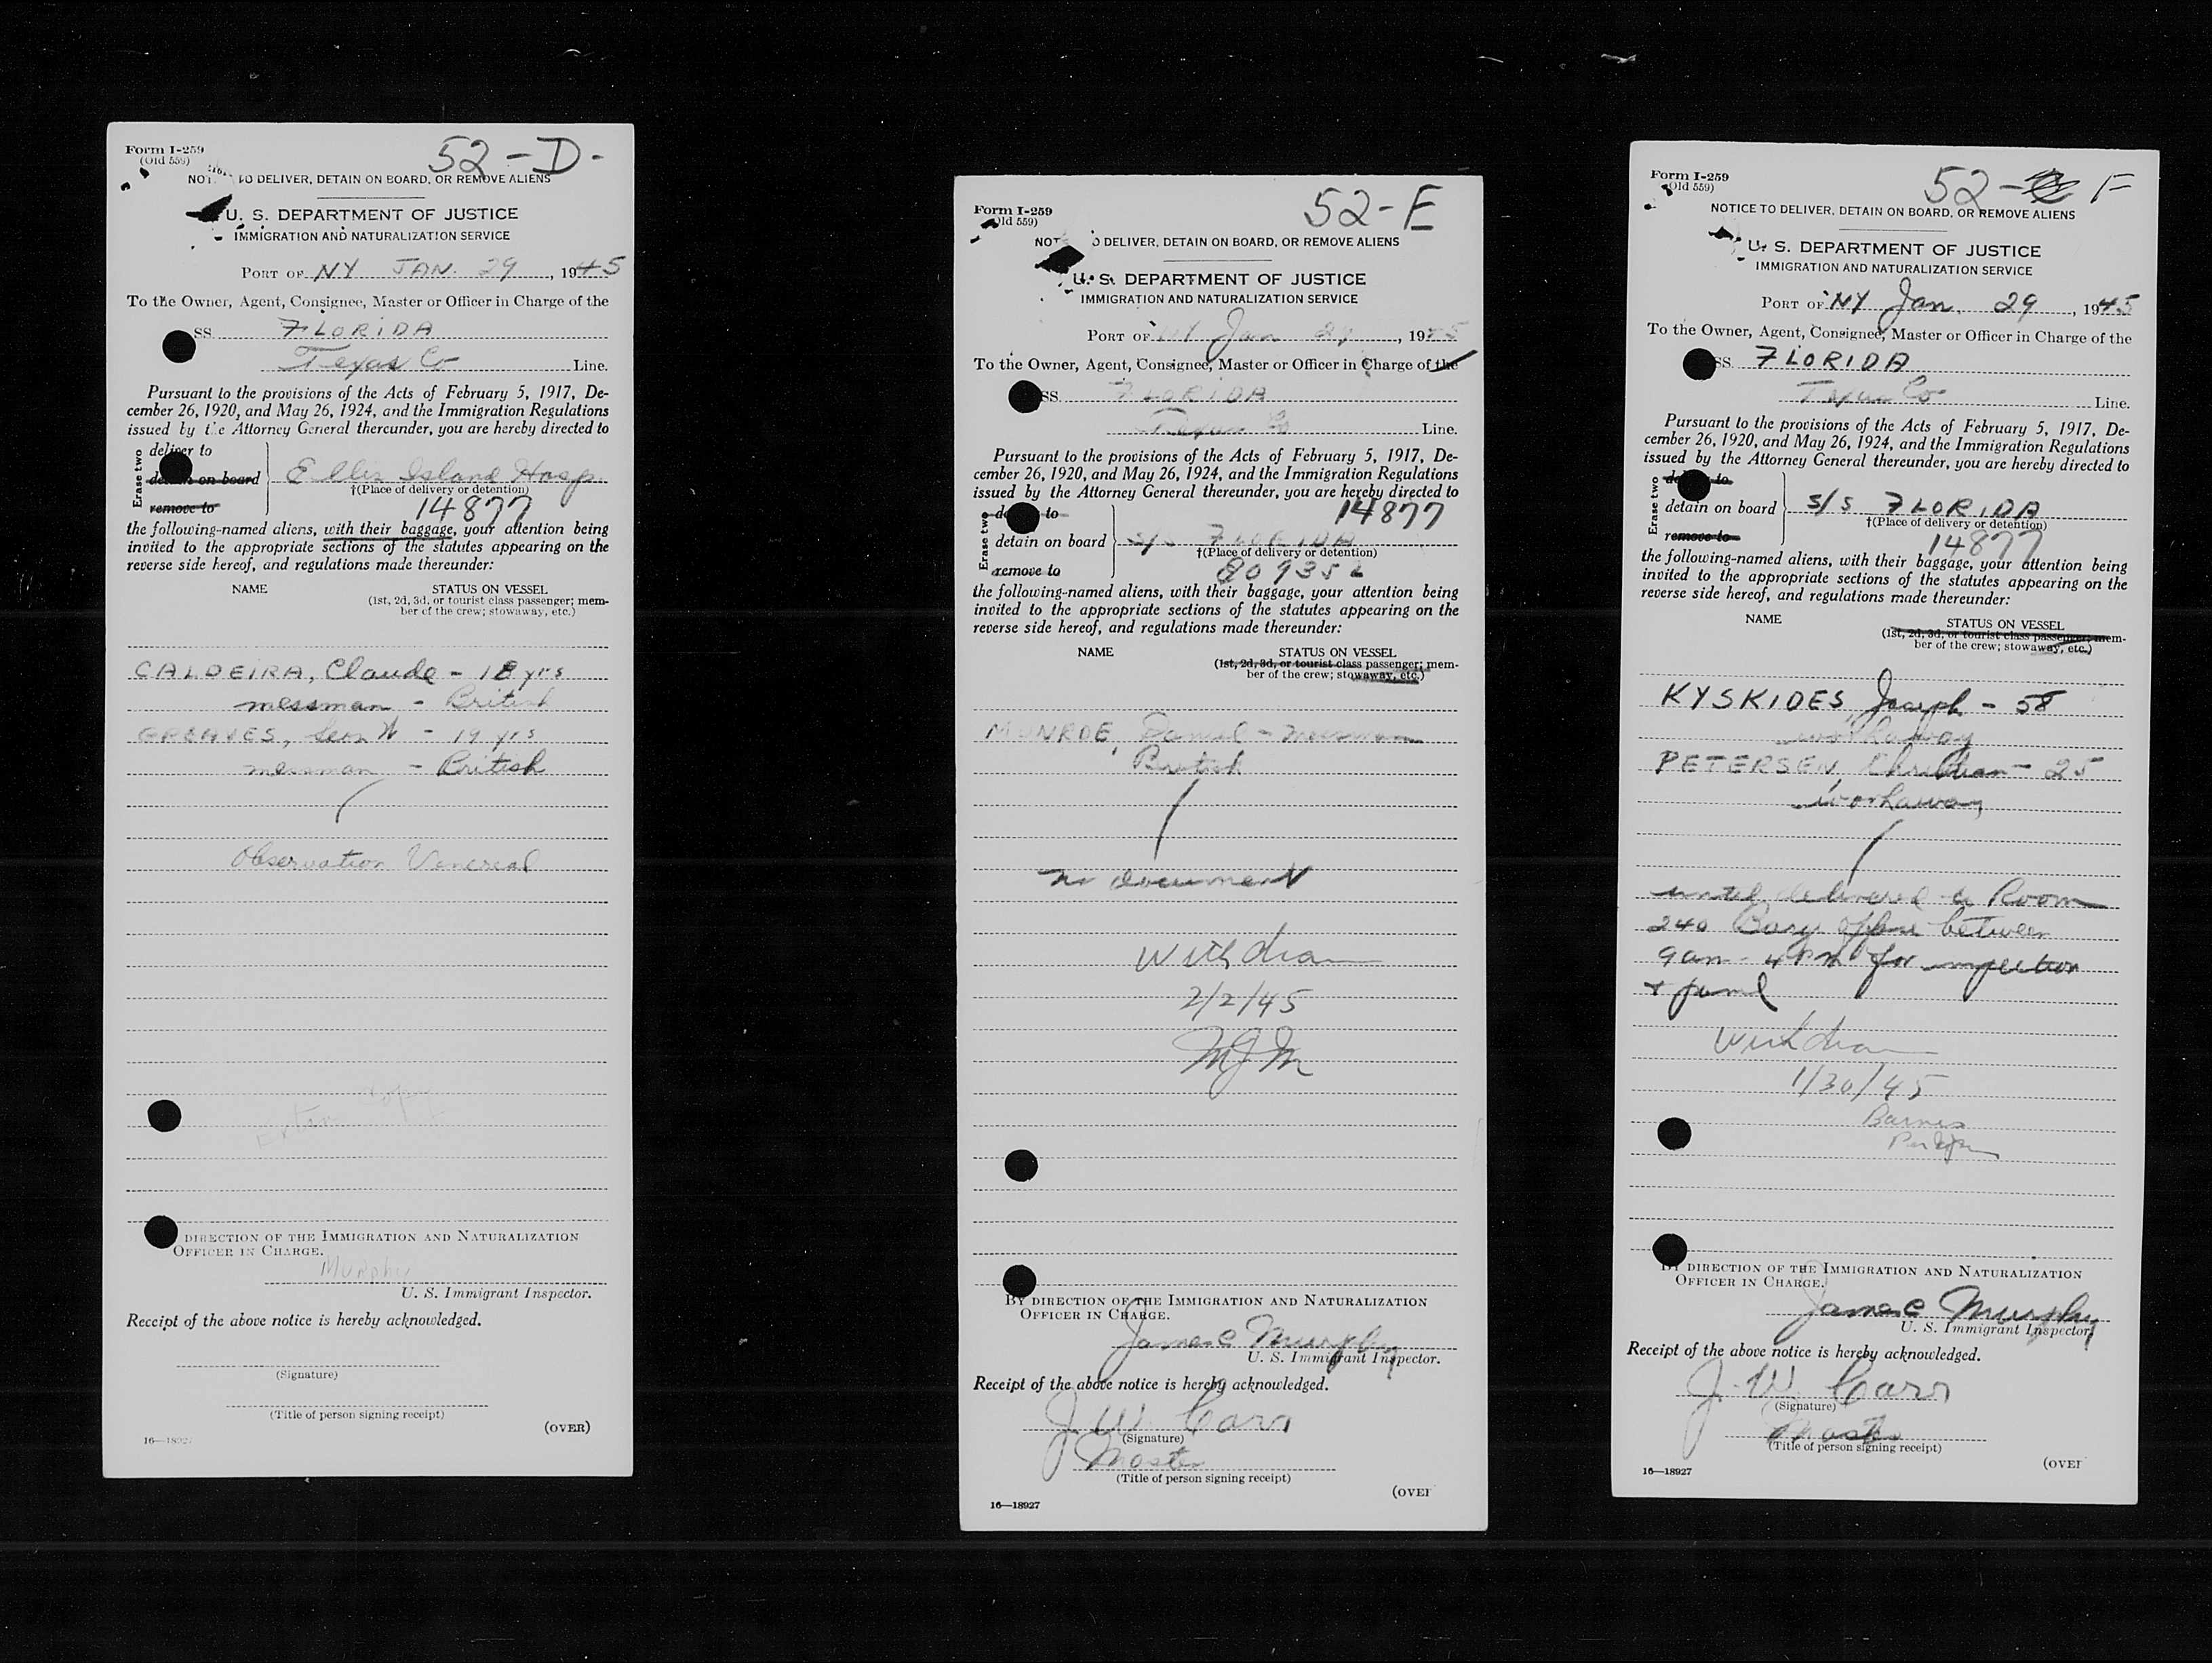 52-D-
Form I-259
(Old 559)
TO DELIVER, DETAIN ON BOARD, OR REMOVE ALIENS
U. S. DEPARTMENT OF JUSTICE
IMMIGRATION AND NATURALIZATION SERVICE
PORT OF NY JAN. 29, 1945
To the Owner, Agent, Consignee, Master or Officer in Charge of the
SS. FLORIDA
Texas Co Line.
Pursuant to the provisions of the Acts of February 5, 1917, De-
cember 26, 1920, and May 26, 1924, and the Immigration Regulations
issued by the Attorney General thereunder, you are hereby directed to
Erase two
deliver to
detain on board
Ellis Island Hosp
†(Place of delivery or detention)
remove to
14877
the following-named aliens, with their baggage, your attention being
invited to the appropriate sections of the statutes appearing on the
reverse side hereof, and regulations made thereunder:
NAME STATUS ON VESSEL
(1st, 2d, 3d, or tourist class passenger; mem-
ber of the crew; stowaway, etc.)
CALDEIRA, Claude - 18 yrs
messman - British
GREAVES, W - 19 yrs
messman - British
Observation Venereal
Extra Copy
DIRECTION OF THE IMMIGRATION AND NATURALIZATION
OFFICER IN CHARGE.
Murphy
U. S. Immigrant Inspector.
Receipt of the above notice is hereby acknowledged.
(Signature)
(Title of person signing receipt)
(OVER)
16—18927
52-E
Form I-259
Old 559)
DELIVER, DETAIN ON BOARD, OR REMOVE ALIENS
U. S. DEPARTMENT OF JUSTICE
IMMIGRATION AND NATURALIZATION SERVICE
PORT OF NY Jan 29, 1945
To the Owner, Agent, Consignee, Master or Officer in Charge of the
SS. FLORIDA
Texas Co Line.
Pursuant to the provisions of the Acts of February 5, 1917, De-
cember 26, 1920, and May 26, 1924, and the Immigration Regulations
issued by the Attorney General thereunder, you are hereby directed to
14877
Erase two
to
detain on board
S/S FLORIDA
†(Place of delivery or detention)
remove to
the following-named aliens, with their baggage, your attention being
invited to the appropriate sections of the statutes appearing on the
reverse side hereof, and regulations made thereunder:
NAME STATUS ON VESSEL
(1st, 2d, 3d, or tourist class passenger; mem-
ber of the crew; stowaway, etc.)
MUNROE, Daniel - messman
British
no document
Withdrawn
2/2/45
MJM
BY DIRECTION OF THE IMMIGRATION AND NATURALIZATION
OFFICER IN CHARGE.
James C Murphy
U. S. Immigrant Inspector.
Receipt of the above notice is hereby acknowledged.
J. W. Carr
(Signature)
Master
(Title of person signing receipt)
(OVER
16—18927
52- F
Form I-259
Old 559)
NOTICE TO DELIVER, DETAIN ON BOARD, OR REMOVE ALIENS
U. S. DEPARTMENT OF JUSTICE
IMMIGRATION AND NATURALIZATION SERVICE
PORT OF NY Jan. 29, 1945
To the Owner, Agent, Consignee, Master or Officer in Charge of the
SS. FLORIDA
Texas Co Line.
Pursuant to the provisions of the Acts of February 5, 1917, De-
cember 26, 1920, and May 26, 1924, and the Immigration Regulations
issued by the Attorney General thereunder, you are hereby directed to
Erase two
to
detain on board
S/S FLORIDA
†(Place of delivery or detention)
remove to
14877
the following-named aliens, with their baggage, your attention being
invited to the appropriate sections of the statutes appearing on the
reverse side hereof, and regulations made thereunder:
NAME STATUS ON VESSEL
(1st, 2d, 3d, or tourist class passenger; mem-
ber of the crew; stowaway, etc.)
KYSKIDES Joseph - 58
workaway
PETERSEN, Christian - 25
workaway
until delivered to Room
240 Barge Office between
9am - 4 PM for inspection
Withdrawn
1/30/45
Barnes
BY DIRECTION OF THE IMMIGRATION AND NATURALIZATION
OFFICER IN CHARGE.
James C Murphy
U. S. Immigrant Inspector
Receipt of the above notice is hereby acknowledged.
J. W. Carr
(Signature)
Master
(Title of person signing receipt)
(OVER
16—18927